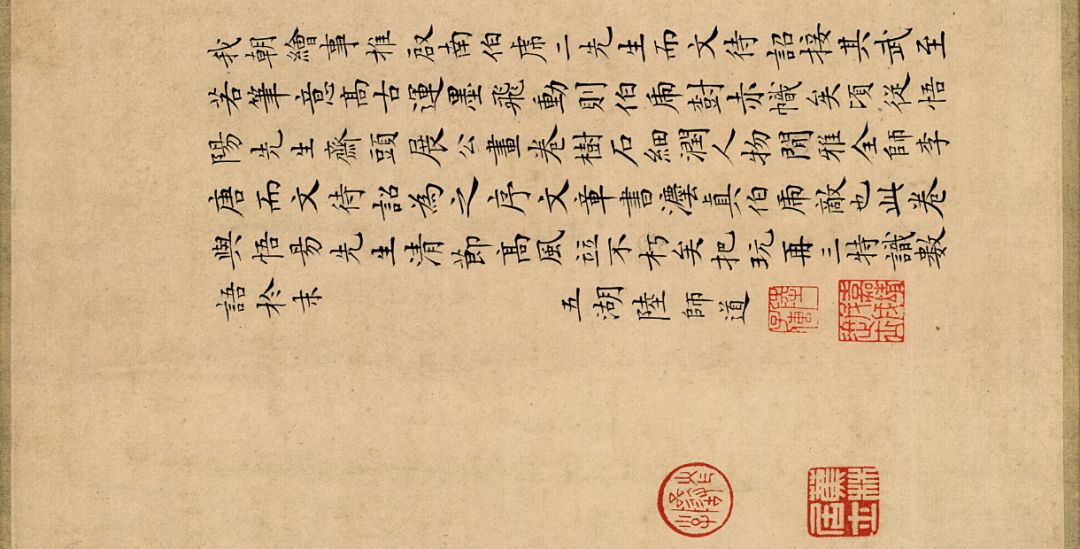 我朝繪事推啟南伯虎二先生而文待詔接其武至
若筆意高古運墨飛動則伯虎對赤幟矣頃從悟
陽先生齋頭展公畫卷樹石細潤人物閒雅全師李
唐而文待詔為之序文章書灋真伯虎敵也此卷
與悟昜先生清節高風竝不朽矣把玩再三特識數
語於末
五湖陸師道